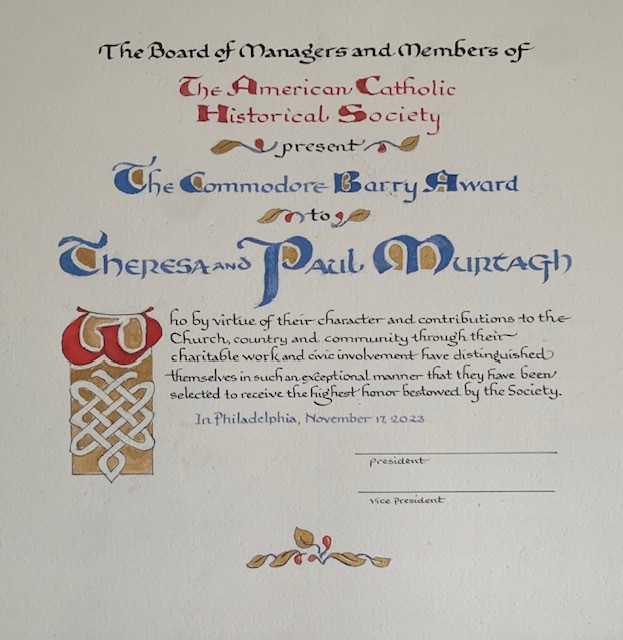 The Board of Managers and Members of
The American Catholic
Historical Society
present
The Commodore Barry Award
to
Theresa and Paul Murtagh
Who by virtue of their character and contributions to the
Church, country and community through their
charitable work and civic involvement have distinguished
themselves in such an exceptional manner that they have been
selected to receive the highest honor bestowed by the Society.
In Philadelphia, November 17, 2023
President
Vice President